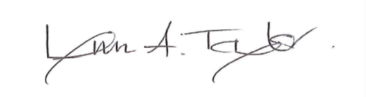 Lynn A. Taylor.